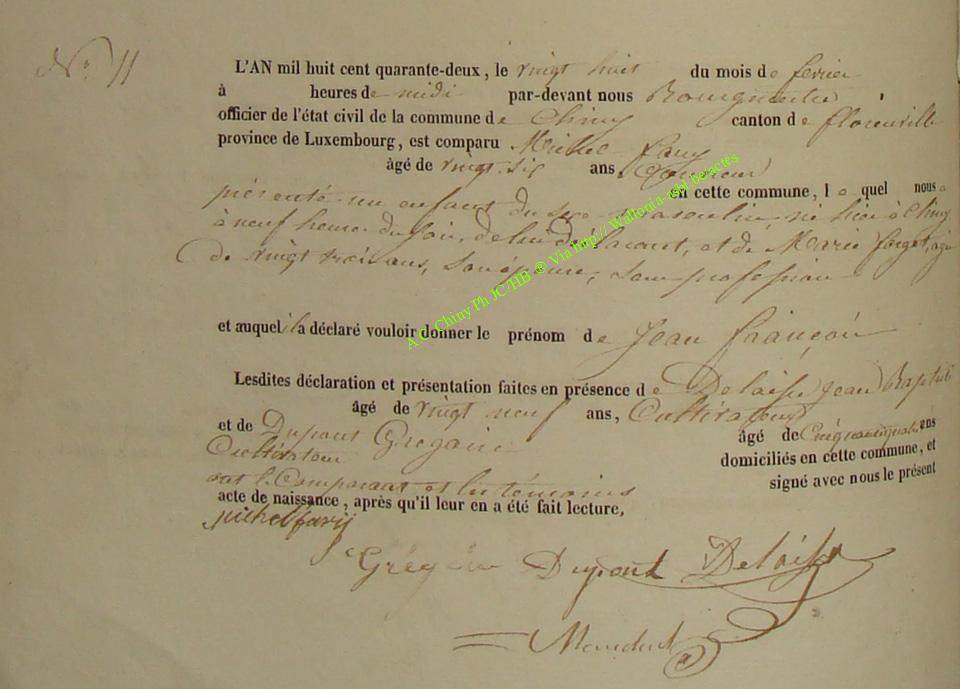 N° 11
L'AN mil huit cent quarante-deux, le vingt huit du mois de fevrier
à heures de midi par-devant nous Bourgmestre
officier de l'état civil de la commune de Chiny canton de florenville
province de Luxembourg, est comparu Michel fary
âgé de vingt-six ans,
en cette commune, le quel nous a
présenté un enfant du sexe masculin né hier à Chiny
à neuf heures du soir, de lui déclarant, et de Marie forget, agée
de vingt trois ans, son épouse, sans profession
et auquel il a déclaré vouloir donner le prénom de Jean françois
Lesdites déclaration et présentation faites en présence de Delaisse Jean Baptiste
âgé de vingt neuf ans, Cultivateur
et de Dupont Gregoire âgé de Cinquante ans
Cultivateur domiciliés en cette commune, et
ont le Comparant et les témoins signé avec nous le présent
acte de naissance, après qu'il leur en a été fait lecture,
michel fary
Grégoire Dupont Delaisse
A.C. Chiny Ph JC/HB ® Via http// Wallonia-asbl beractes